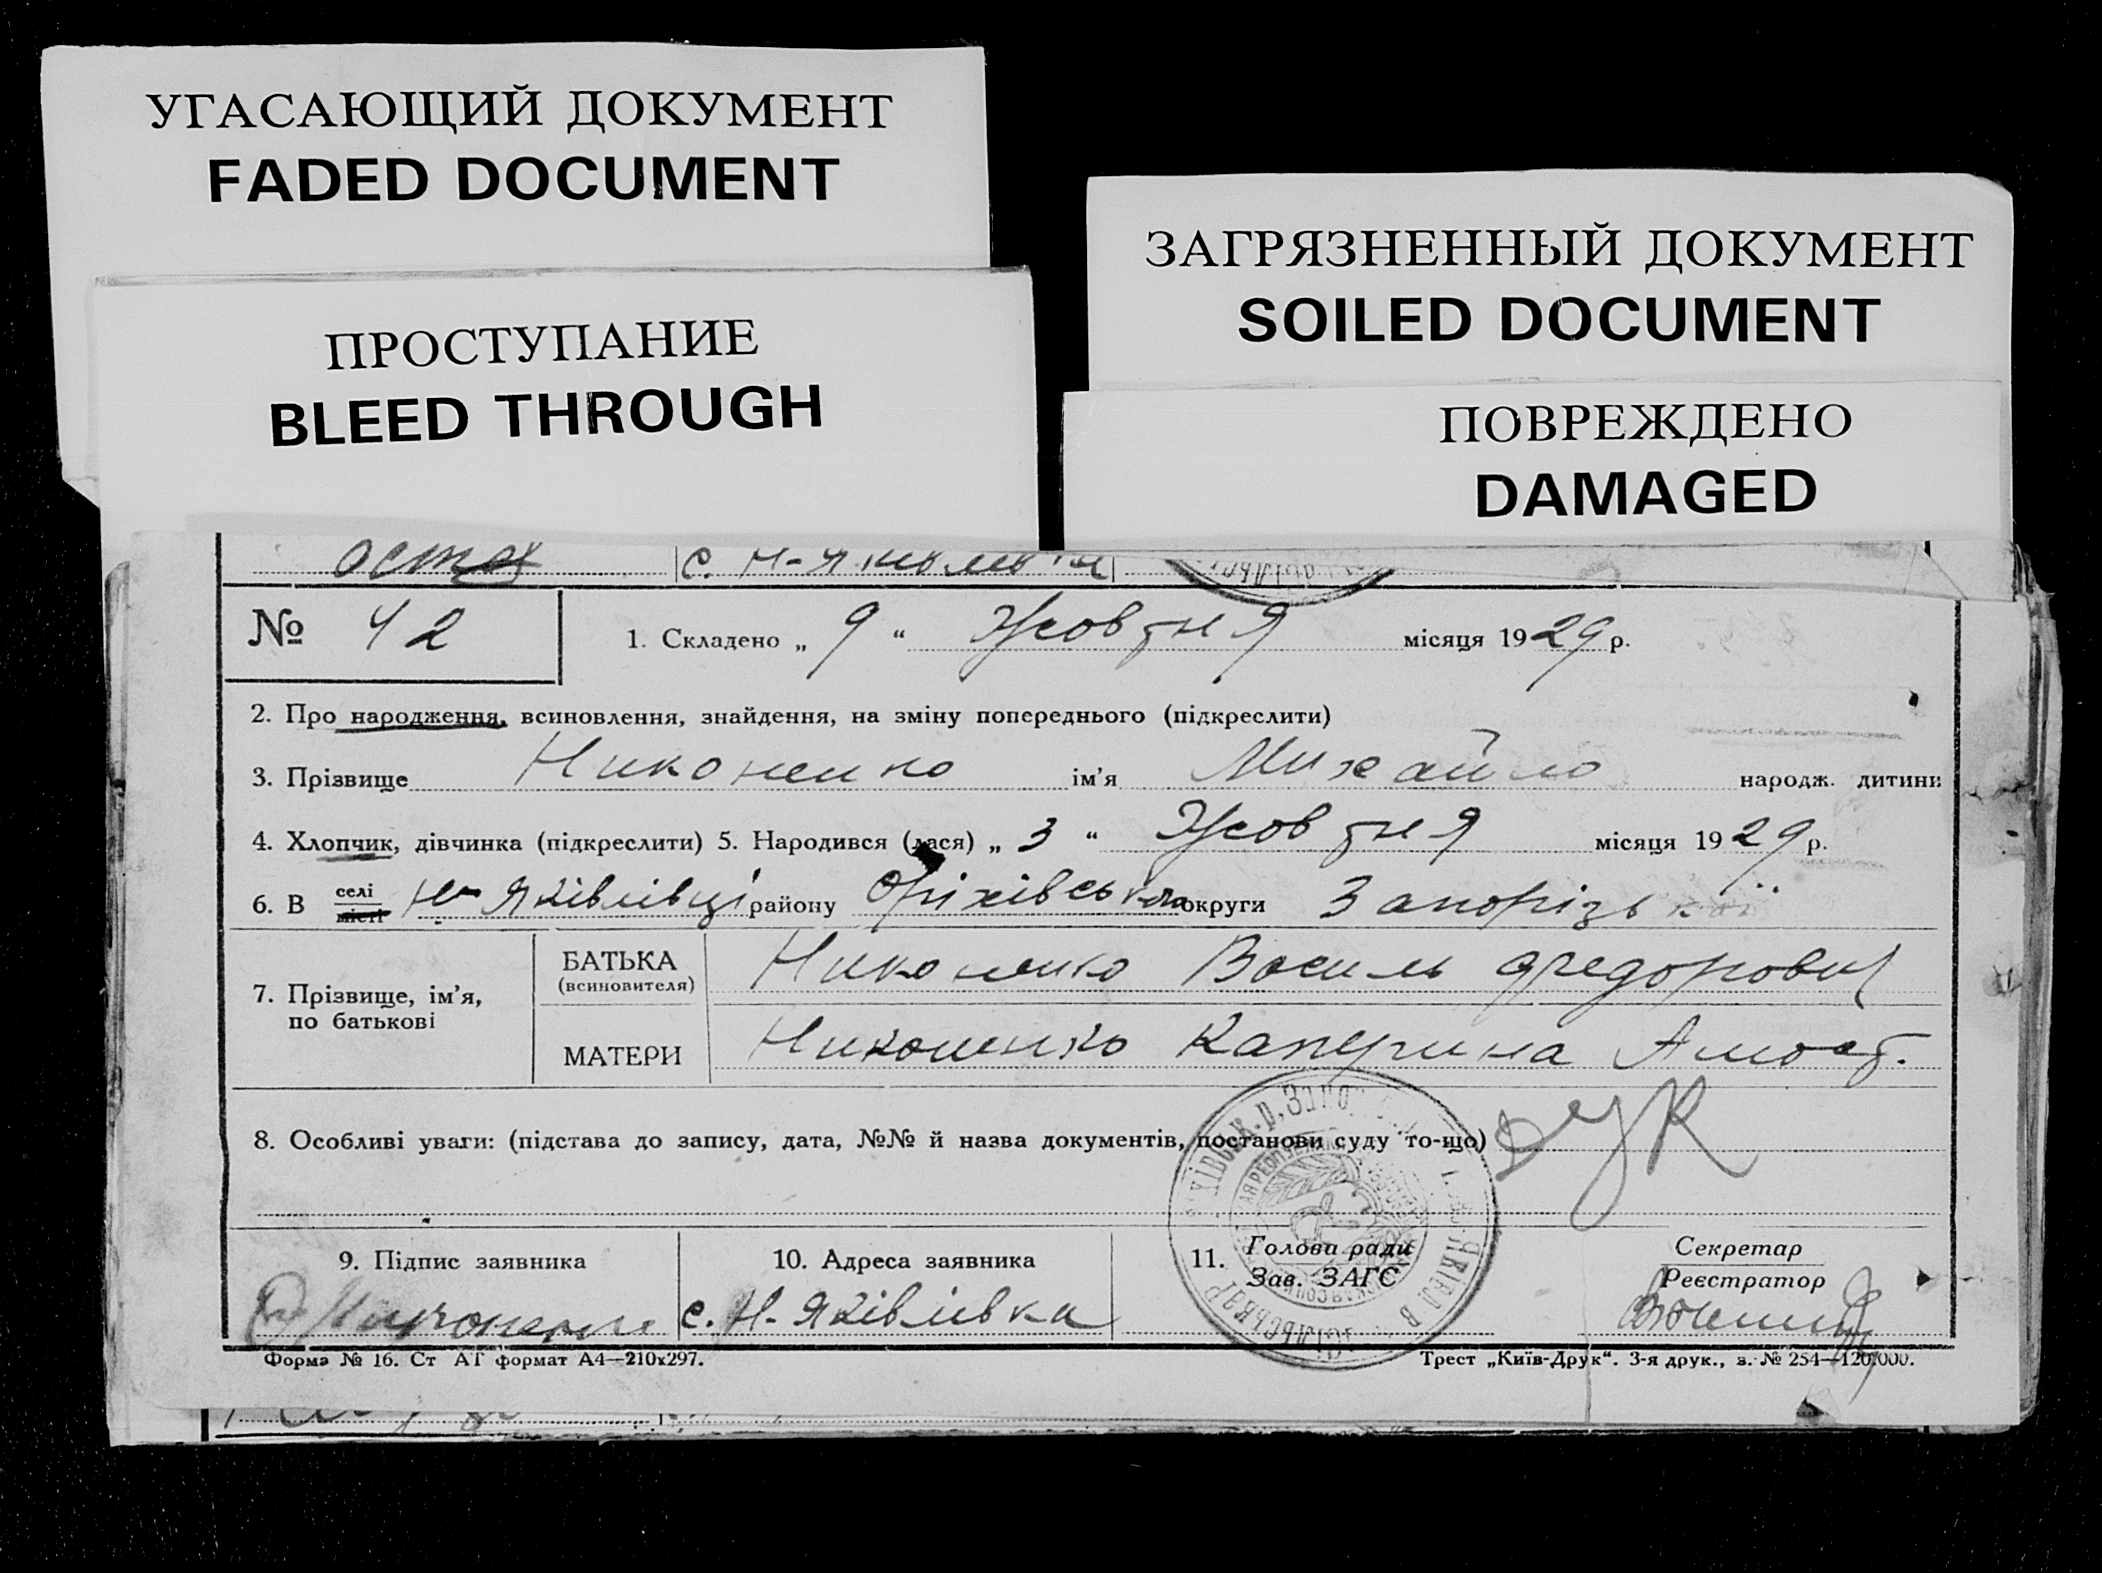 УГАСАЮЩИЙ ДОКУМЕНТ
FADED DOCUMENT
ПРОСТУПАНИЕ
BLEED THROUGH
ЗАГРЯЗНЕННЫЙ ДОКУМЕНТ
SOILED DOCUMENT
ПОВРЕЖДЕНО
DAMAGED
№ 42
1. Складено „ 9 “ Жовтня місяця 1929 р.
2. Про народження, всиновлення, знайдення, на зміну попереднього (підкреслити)
3. Прізвище Никоненко ім’я Михайло народж. дитини
4. Хлопчик, дівчинка (підкреслити) 5. Народився (лася) „ 3 “ Жовтня місяця 1929 р.
6. В селі місті Н-Яківлівці району Оріхівського округи Запорізької
7. Прізвище, ім’я, по батькові
БАТЬКА (всиновителя) Никоненко Василь Федорович
МАТЕРИ Никоненко Катерина
8. Особливі уваги: (підстава до запису, дата, №№ й назва документів, постанови суду то-що)
9. Підпис заявника
10. Адреса заявника
с. Н-Яківлівка
11. Голова ради
Зав. ЗАГС
Секретар
Реєстратор
Форма № 16. Ст АГ формат А4—210х297.
Трест „Київ-Друк“. 3-я друк., з. № 254—120.000.